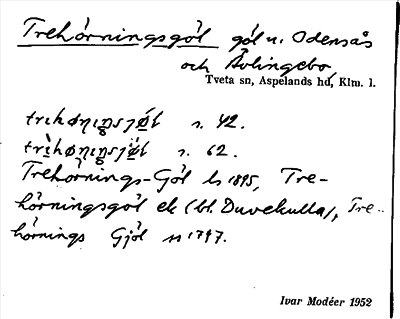 Trehörningsgöl göl n. Odensås
och Älvlingebo
Tveta sn, Aspelands hd, Klm. l.
s. 42.
s. 62.
Trehörnings-Göl ls 1895, Tre-
hörningsgöl ek (bl. Duvekulla), Tre-
hörnings Gjöl 1797.
Ivar Modéer 1952